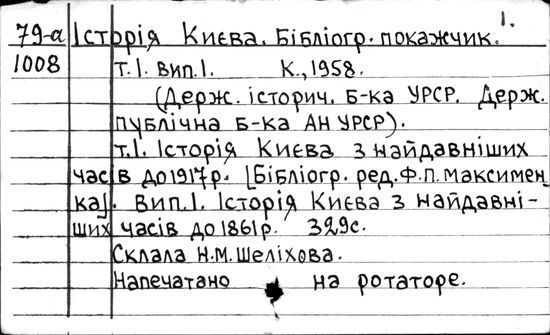 1.
79-а Історія Києва. Бібліогр. покажчик.
1008 т.1. Вип.1. К., 1958.
(Держ. історич. Б-ка УРСР. Держ.
публічна Б-ка АН УРСР).
т.1. Історія Києва з найдавніших
часів до 1917р. [Бібліогр. ред. Ф.П. Максимен
ка]. Вип.1. Історія Києва з найдавні-
ших часів до 1861р. 329с.
Склала Н.М. Шеліхова.
Напечатано на ротаторе.